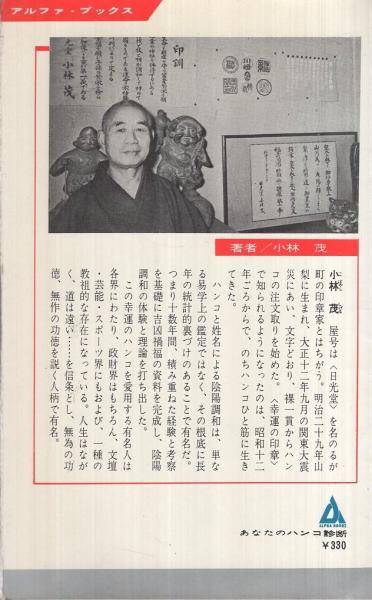 アルファ・ブックス
印訓
著者/小林 茂
小林 茂 屋号は〈日光堂〉を名のるが
町の印章家とはちがう。明治二十九年山
梨に生まれ、大正十二年九月の関東大震
災にあい、文字どおり、裸一貫からハン
コの注文取りを始めた。〈幸運の印章〉
で知られるようになったのは、昭和十二
年ごろからで、のちハンコひと筋に生き
てきた。
ハンコと姓名による陰陽調和は、単な
る易学上の鑑定ではなく、その根底に長
年の統計的裏づけのあることで有名だ。
つまり十数年間、積み重ねた経験と考察
を基礎に吉凶禍福の資料を完成し、陰陽
調和の体験と理論を打ち出した。
この幸運のハンコを愛用する有名人は
各界にわたり、政財界はもちろん、文壇
・芸能・スポーツ界にもおよび、一種の
教祖的な存在になっている。人生はなが
く、道は遠い……を信条とし、無為の功
徳、無作の功徳を説く人柄で有名。
ALPHA BOOKS
あなたのハンコ診断
¥330